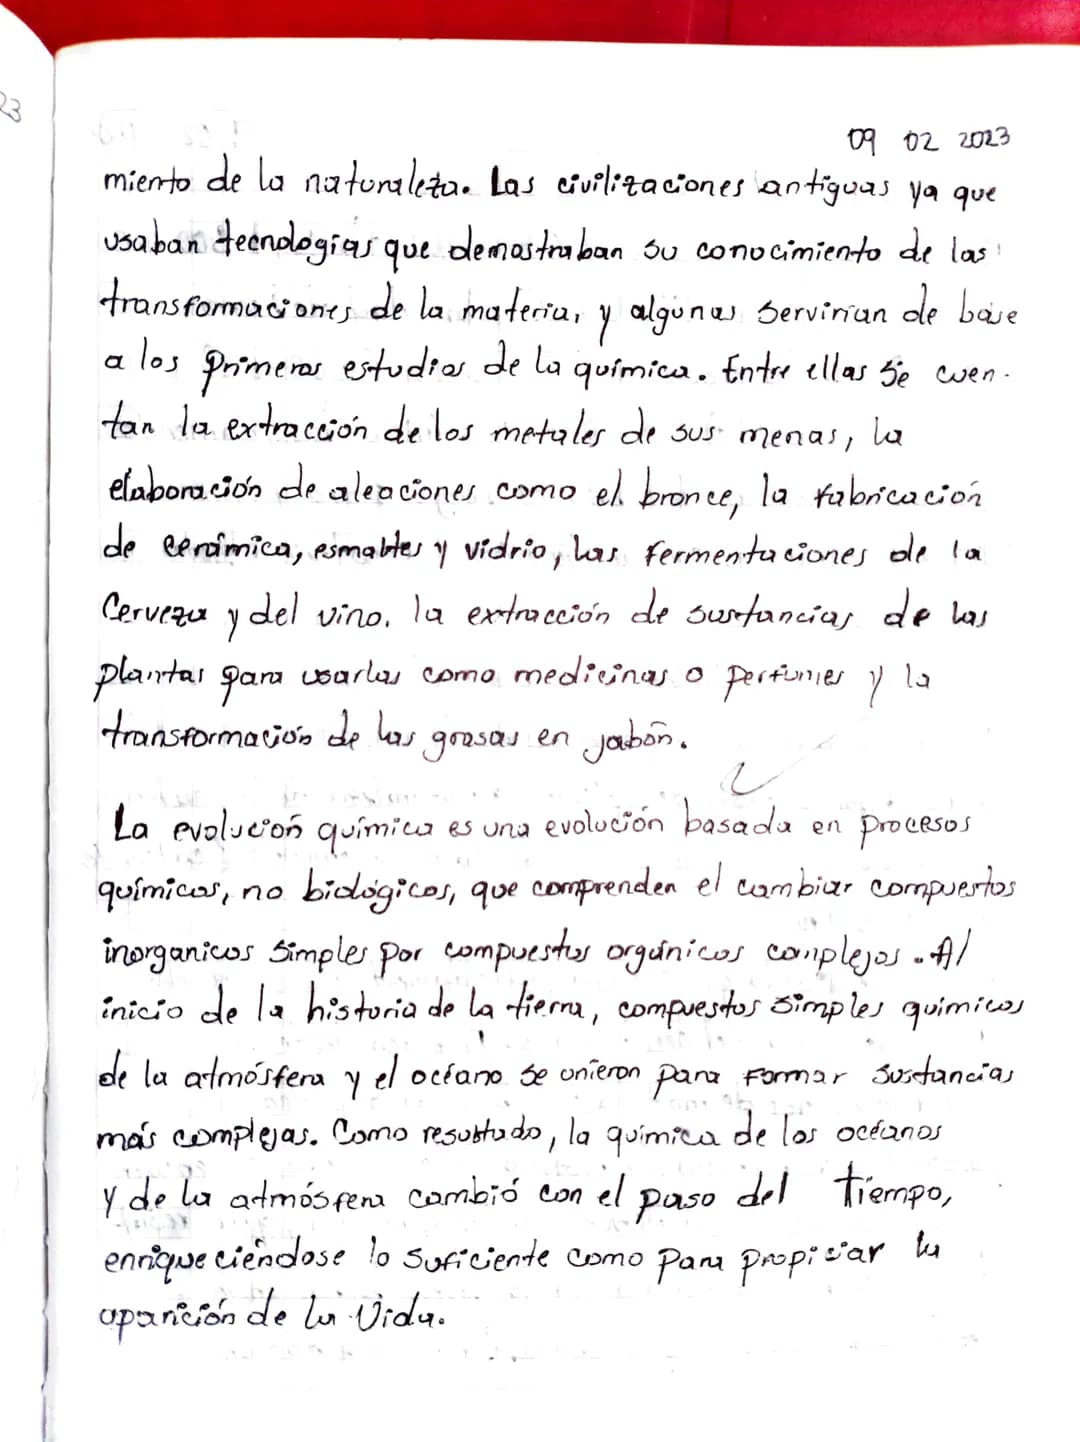 23
09 02 2023
miento de la naturaleza. Las civilizaciones antiguas ya que
usaban tecnologías que demostraban su conocimiento de las
transformaciones de la materia, y algunas servirían de base
a los primeros estudios de la química. Entre ellas se cuen-
tan la extracción de los metales de sus menas, la
elaboración de aleaciones como el bronce, la fabricación
de cerámica, esmaltes y vidrio, las fermentaciones de la
Cerveza y del vino, la extracción de sustancias de las
plantas para usarlas como medicinas o perfumes y la
transformación de las grasas en jabón.
La evolución química es una evolución basada en procesos
químicos, no biológicos, que comprenden el cambiar compuestos
inorganicos simples por compuestos orgánicos complejos. Al
inicio de la historia de la tierra, compuestos simples químicos
de la atmósfera y el océano se unieron para formar sustancias
más complejas. Como resultado, la química de los océanos
y de la atmósfera cambió con el paso del tiempo,
enriqueciéndose lo suficiente como para propiciar la
aparición de la Vida.